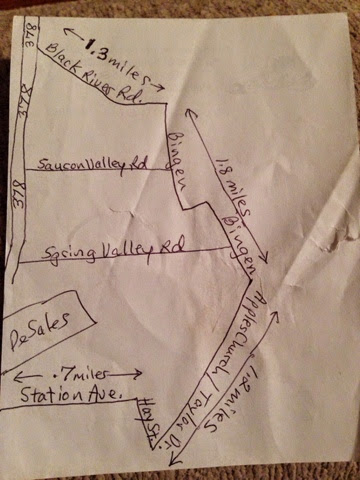 378
1.3 miles
Black River Rd.
378
Bingen
Saucon Valley Rd
1.8 miles
378
Bingen
Spring Valley Rd
DeSales
Apples Church / Taylor Dr.
1.2 miles
.7 miles
Station Ave.
Hay St.